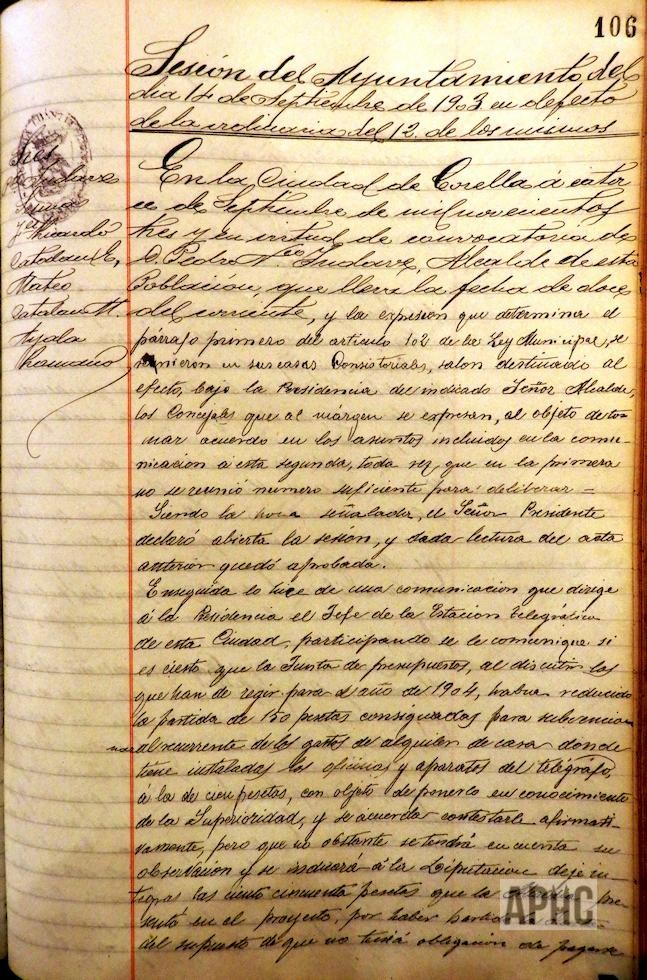 106
Sesión del Ayuntamiento del
dia 14 de Septiembre de 1903 en defecto
de la ordinaria del 12 de los mismos
Sres.
Ricardo
Catalan E,
Mateo
Catalan M.
Ayala
En la Ciudad de Corella á cator
ce de Septiembre de mil novecientos
tres y en virtud de convocatoria de
D. Pedro Nco Alcalde de esta
Poblacion, que lleva la fecha de doce
del corriente, y la expresion que determina el
párrafo primero del articulo 102 de la Ley Municipal, se
reunieron en sus casas Consistoriales, salon destinado al
efecto, bajo la Presidencia del indicado Señor Alcalde,
los Concejales que al márgen se expresan, al objeto de to-
mar acuerdo en los asuntos incluidos en la comu-
nicacion á esta segunda, toda vez, que en la primera
no se reunió numero suficiente para deliberar =
Siendo la hora señalada, el Señor Presidente
declaró abierta la sesión, y dada lectura del acta
anterior quedó aprobada.
Enseguida lo hice de una comunicacion que dirige
á la Presidencia el Jefe de la Estacion telegráfica
de esta Ciudad, participando se le comunique si
es cierto que la Junta de presupuestos, al discutir los
que han de regir para el año de 1904, habia reducido
la partida de 150 pesetas consignadas para subvencio-
nar al recurrente de los gastos de alquiler de casa donde
tiene instaladas las oficinas y aparatos del telégrafo,
á la de cien pesetas, con objeto de ponerlo en conocimiento
de la Superioridad, y se acuerda contestarle afirmati-
vamente, pero que no obstante se tendrá en cuenta su
observacion y se á la Diputacion deje in-
tegras las ciento cincuenta pesetas que la pre-
sentó en el proyecto, por haber
del supuesto de que no tenia obligacion de pagarse
APHC